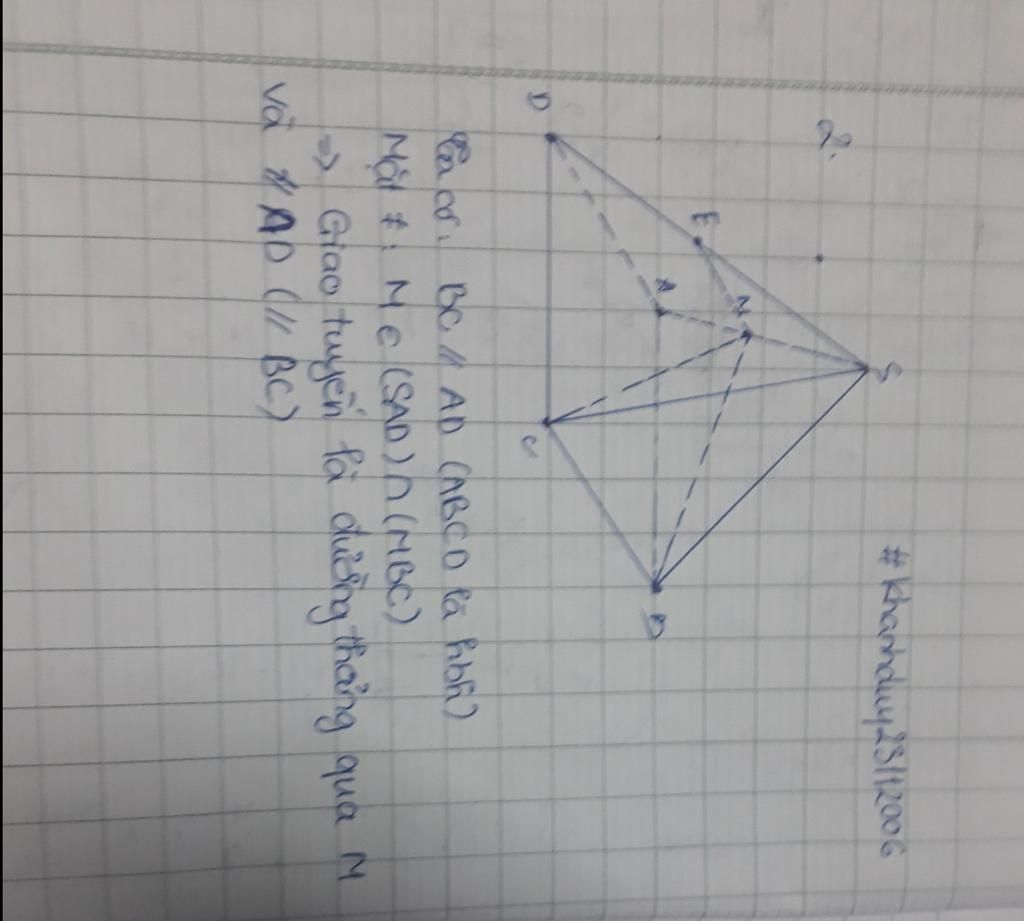 #Khanhduy23112006
2.
S
E
N
A
D
B
C
Ta có: BC // AD (ABCD là hbh)
Mặt ≠: M ∈ (SAD) ∩ (MBC)
=> Giao tuyến là đường thẳng qua M
và // AD (// BC)